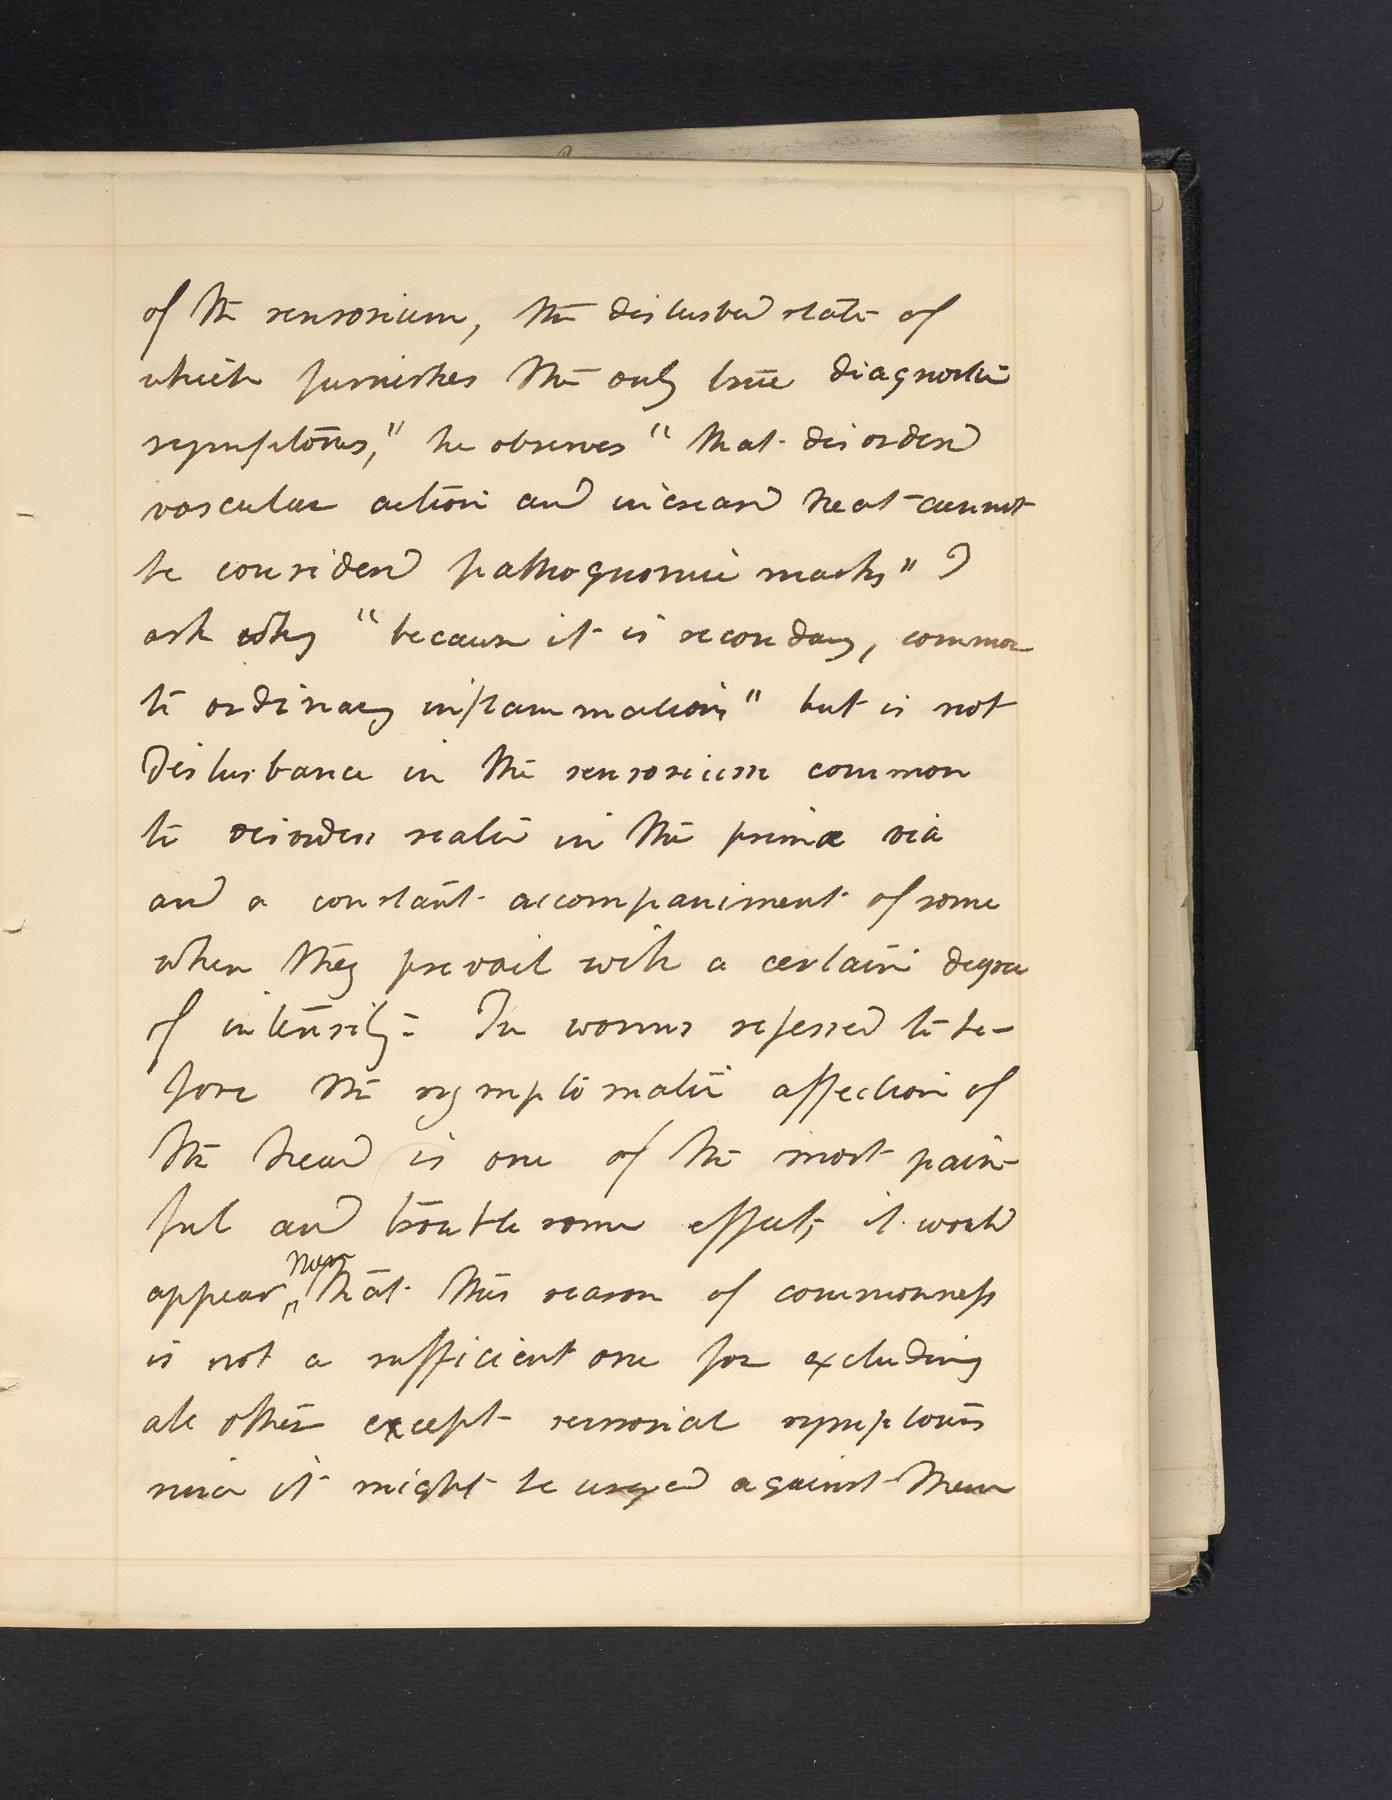 of the sensorium, the disturbed state of
which furnishes the only true diagnostic
symptoms," he observes "that disordered
vascular action and increased heat cannot
be considered pathognomic marks" I
ask why "because it is secondary, common
to ordinary inflammations" but is not
Disturbance in the sensorium common
to disorders seated in the primæ viæ
and a constant accompaniment of some
when they prevail with a certain degree
of intensity? In worms referred to be-
fore the symptomatic affection of
the head is one of the most pain-
ful and troublesome effects, it would
appear then that this reason of commonness
is not a sufficient one for excluding
all others except sensorial symptoms
since it might be urged against them